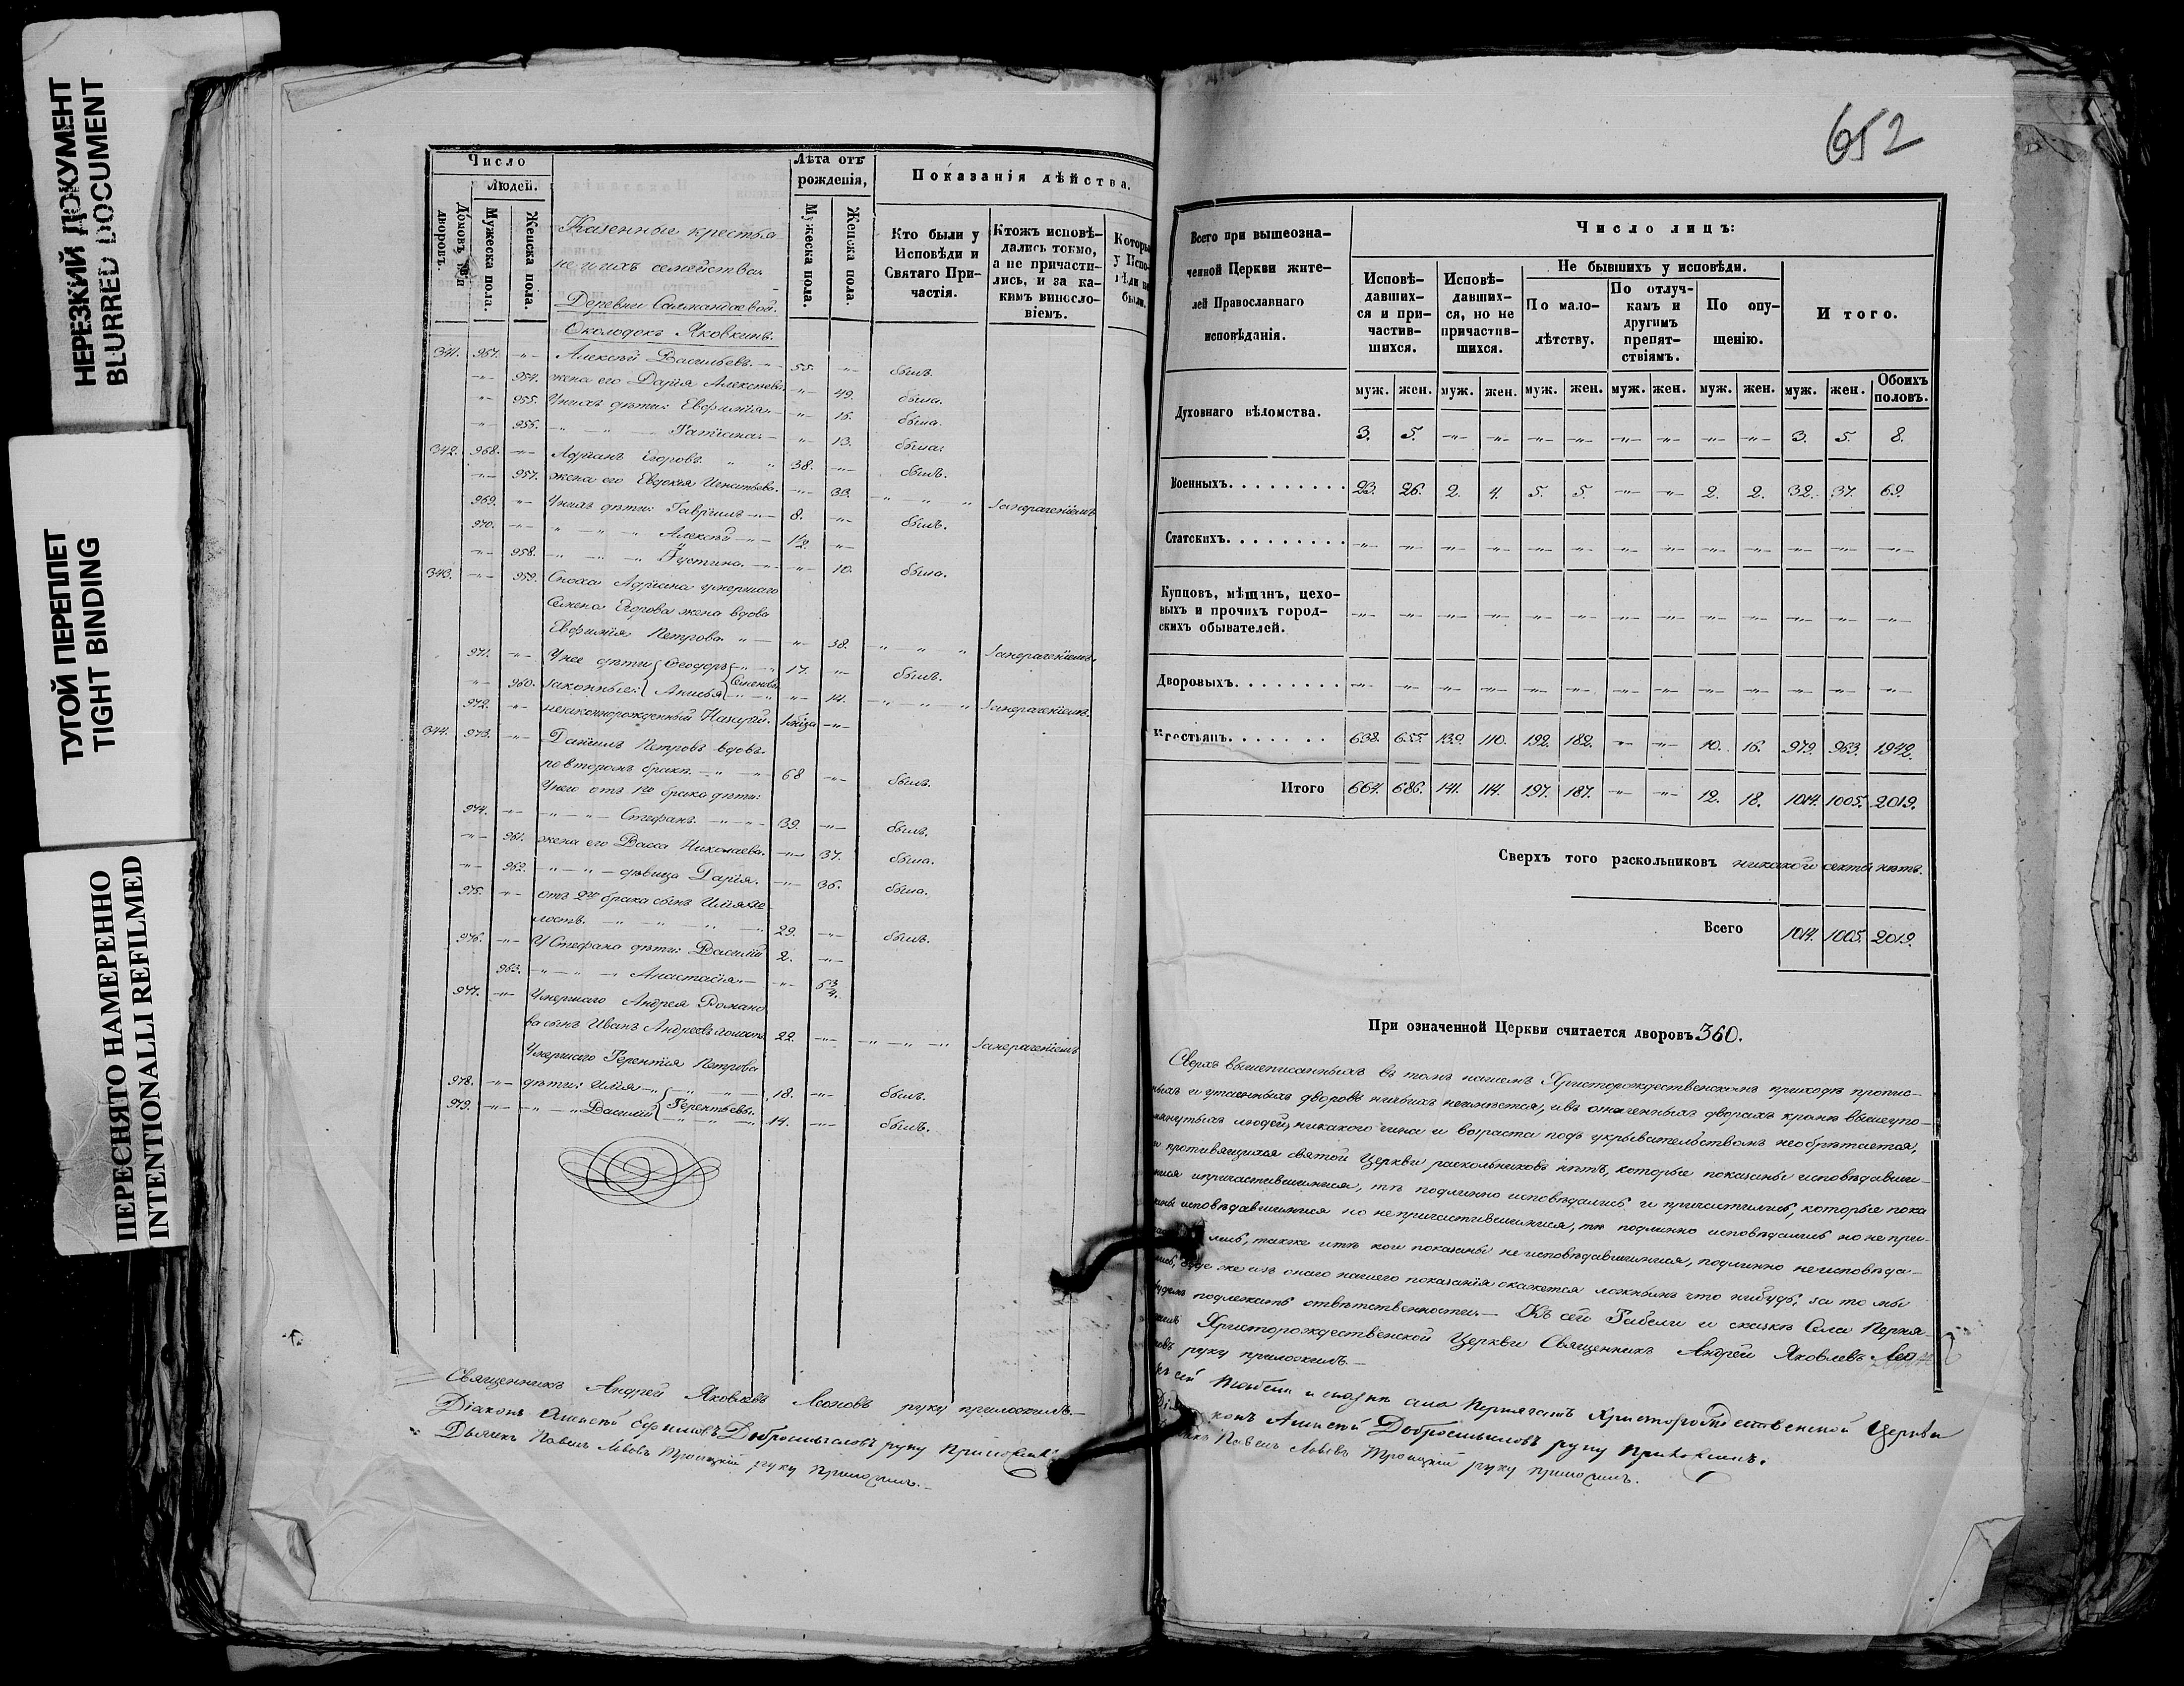 НЕРЕЗКИЙ ДОКУМЕНТ
BLURRED DOCUMENT
ТУГОЙ ПЕРЕПЛЕТ
TIGHT BINDING
ПЕРЕСНЯТО НАМЕРЕННО
INTENTIONALLI REFILMED
Число
Людей.
Домовъ или дворовъ.
Мужеска пола.
Женска пола.
Лѣта отъ рожденія,
Мужеска пола.
Женска пола.
Показанія дѣйства.
Кто были у Исповѣди и Святаго Причастія.
Ктожъ исповѣдались токмо, а не причастились, и за какимъ винословіемъ.
Казенные крестья-
не и ихъ семейства.
Деревни
Околодокъ Яковкинъ.
341. 967. -"- Алексѣй Васильевъ. 55. -"- былъ.
-"- 954. жена его Дарія Алексѣева -"- 49. была.
-"- 955. У нихъ дѣти: Евфимія -"- 15. была.
-"- 956. Татіана -"- 13. была.
342. 968. -"- Адріанъ Егоровъ 38. -"- былъ.
-"- 957. жена его Евдокія Игнатьева. -"- 39. За нераченіемъ.
969. -"- У нихъ дѣти: Гавріилъ 8. -"- былъ.
970. -"- Алексѣй 1/2. -"-
-"- 958. Іустина -"- 10. была.
343. -"- 959. Сноха Адріана умершаго
Семена Егорова жена вдова
Евфимія Петрова -"- 38. За нераченіемъ.
971. -"- У нее дѣти Ѳеодоръ Семеновы 17. -"- былъ.
-"- 960. законные: Анисья -"- 14. За нераченіемъ.
972. -"- незаконнорожденный -"-
344. 973. -"- Даніилъ Петровъ вдовъ
по второмъ бракѣ 68 -"- былъ.
У него отъ 1го брака дѣти:
974. -"- Стефанъ 39. -"- былъ.
-"- 961. жена его Васса Николаева. -"- 37. была.
-"- 962. дѣвица Дарія. -"- 36. была.
975. -"- отъ 2го брака сынъ Илія хо-
лостъ. 29. -"- былъ.
976. -"- У Стефана дѣти: Василій 2. -"-
963. Анастасія -"- 6 3/4.
977. -"- Умершаго Андрея Романо
ва сынъ Иванъ Андреевъ холостъ 22. -"- За нераченіемъ
Умершаго Терентія Петрова
978. -"- дѣти: Илія 18. -"- былъ.
979. -"- Василій Терентьевы. 14. -"- былъ.
Священникъ Андрей Яковлевъ Леоновъ руку приложилъ.
Діаконъ Алексѣй Добросмысловъ руку приложилъ
Дьячекъ Павелъ Львовъ Троицкій руку приложилъ.
652
Всего при вышеозначенной Церкви жителей Православнаго исповѣданія.
Число лицъ:
Исповѣдавшихся и причастившихся.
Исповѣдавшихся, но не причастившихся.
Не бывшихъ у исповѣди.
По малолѣтству.
По отлучкамъ и другимъ препятствіямъ.
По опущенію.
Итого.
муж. жен. муж. жен. муж. жен. муж. жен. муж. жен. муж. жен. Обоихъ половъ.
Духовнаго вѣдомства. 3. 5. -"- -"- -"- -"- -"- -"- -"- -"- 3. 5. 8.
Военныхъ. 23. 26. 2. 4. 5. 5. -"- -"- 2. 2. 32. 37. 69.
Статскихъ. -"- -"- -"- -"- -"- -"- -"- -"- -"- -"- -"- -"- -"-
Купцовъ, мѣщанъ, цехо-
выхъ и прочихъ город-
скихъ обывателей. -"- -"- -"- -"- -"- -"- -"- -"- -"- -"- -"- -"- -"-
Дворовыхъ. -"- -"- -"- -"- -"- -"- -"- -"- -"- -"- -"- -"- -"-
Крестьянъ. 638. 655. 139. 110. 192. 182. -"- -"- 10. 16. 979. 963. 1942.
Итого 664. 686. 141. 114. 197. 187. -"- -"- 12. 18. 1014. 1005. 2019.
Сверхъ того раскольниковъ никакой секты нѣтъ.
Всего 1014. 1005. 2019.
При означенной Церкви считается дворовъ 360.
Сверхъ вышеписанныхъ въ томъ нашемъ Христорождественскомъ приходѣ пропис-
ныхъ и утаенныхъ дворовъ никакихъ неимѣется, и въ означенныхъ дворахъ кромѣ вышеупо-
мянутыхъ людей, никакого чина и возраста подъ укрывательствомъ необрѣтается,
и противящихся святой Церкви раскольниковъ нѣтъ, которые показаны исповѣдавши-
мися и причастившимися, тѣ подлинно исповѣдались и причастились, которые пока
заны исповѣдавшимися но не причастившимися, тѣ подлинно исповѣдались но не при-
лись, также и тѣ кои показаны не исповѣдавшимися, подлинно не исповѣда-
лись, буде же изъ онаго нашего показанія окажется ложнымъ что нибудь, за то мы
будемъ подлежать отвѣтственности. — Къ сей Табели и сказкѣ Села
Христорождественской Церкви Священникъ Андрей Яковлевъ Лео
новъ руку приложилъ.
Къ сей Табели и сказкѣ села Христорождественской Церкви
Діаконъ Алексѣй Добросмысловъ руку приложилъ.
Павелъ Львовъ Троицкій руку приложилъ.